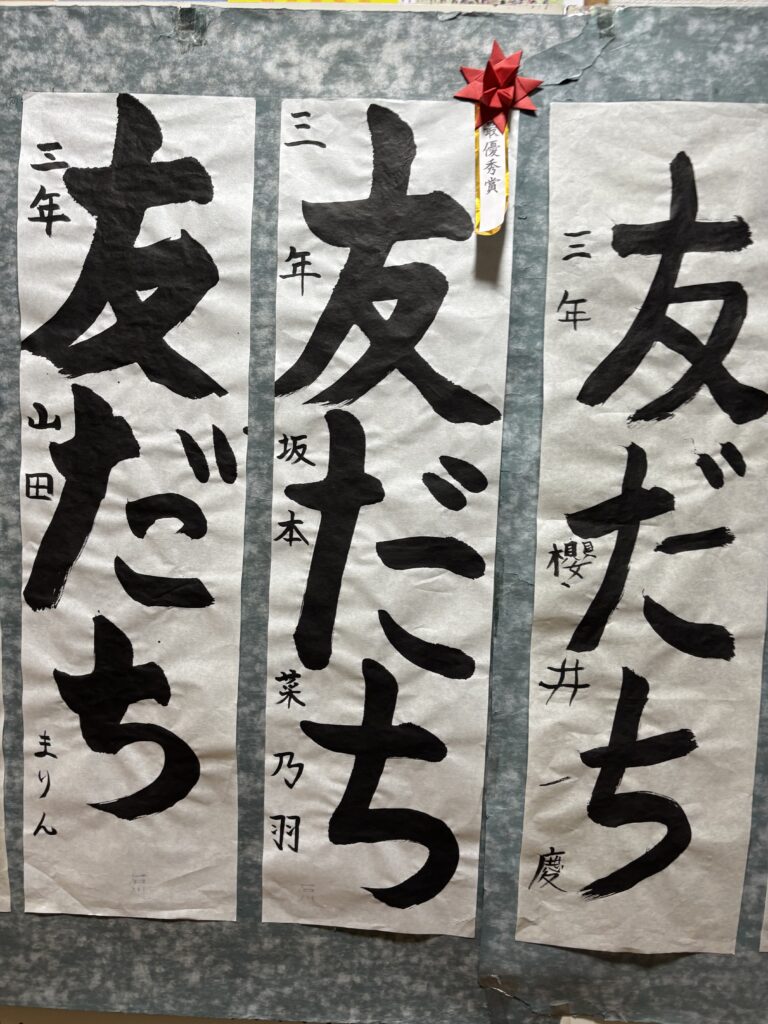 友だち
三年 坂本 菜乃羽
最優秀賞
友だち
三年 山田 まりん
友だち
三年 櫻井 一慶